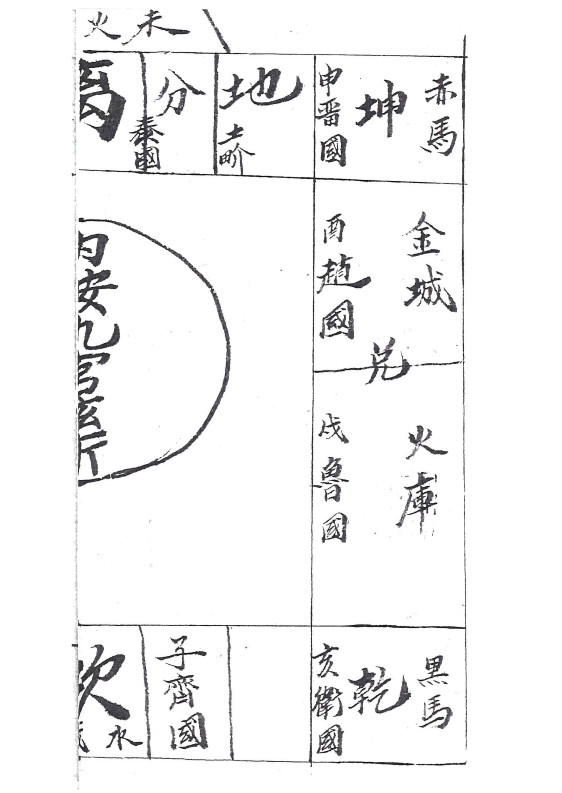 未火
赤馬
坤
申晉國
地
土
分
秦國
离
金城
酉趙國
兌
火庫
戌魯國
内安九宮
黒馬
乾
亥衛國
子齊國
坎
水